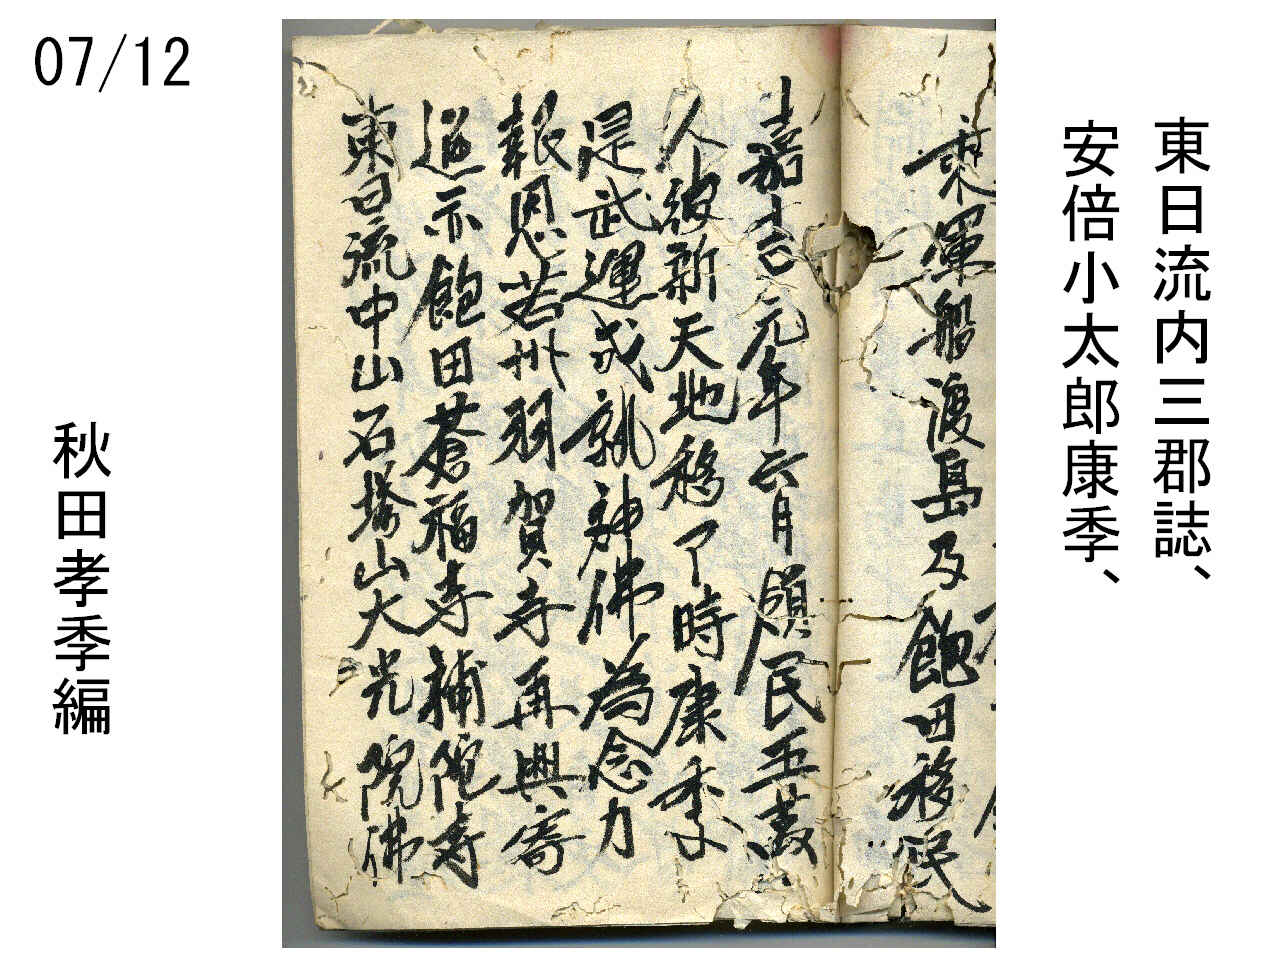 07/12
東日流内三郡誌、
安倍小太郎康季、
秋田孝季編
乗運船渡島及飽田移民
嘉吉元年六月領民五萬
人彼新天地移了時康季
是武運成就神佛為念力
報恩若州羽賀寺再興寄
進亦飽田蒼福寺補陀寺
東日流中山石塔山大光院佛